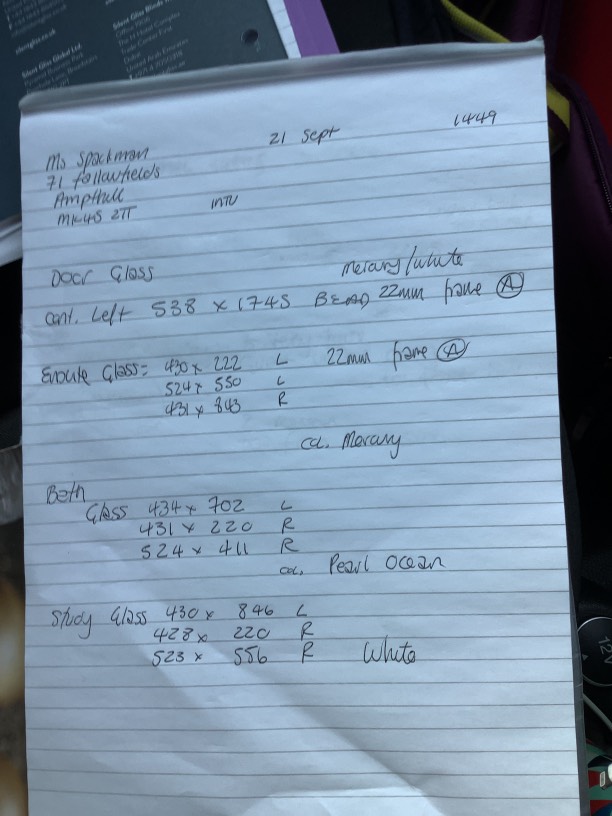 Silent Gliss Global Ltd
Ms Spackman
21 Sept
1449
71 fallowfields
Ampthill
MK45 2TT
INTU
Door Glass
Merary/White
Cont. Left 538 x 1745 BEAD 22mm frame A
Ensuite Glass: 430 x 222 L 22mm frame A
524 x 550 L
431 x 843 R
col. Merary
Beth
Glass 434 x 702 L
431 x 220 R
524 x 411 R
col. Pearl Ocean
Study Glass 430 x 846 L
428 x 220 R
523 x 556 R White
12V